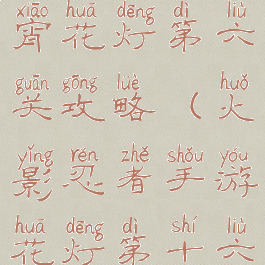 xiāo huā dēng dì liù
宵花灯第六
guān gōng lüè huǒ
关攻略（火
yǐng rěn zhě shǒu yóu
影忍者手游
huā dēng dì shí liù
花灯第十六